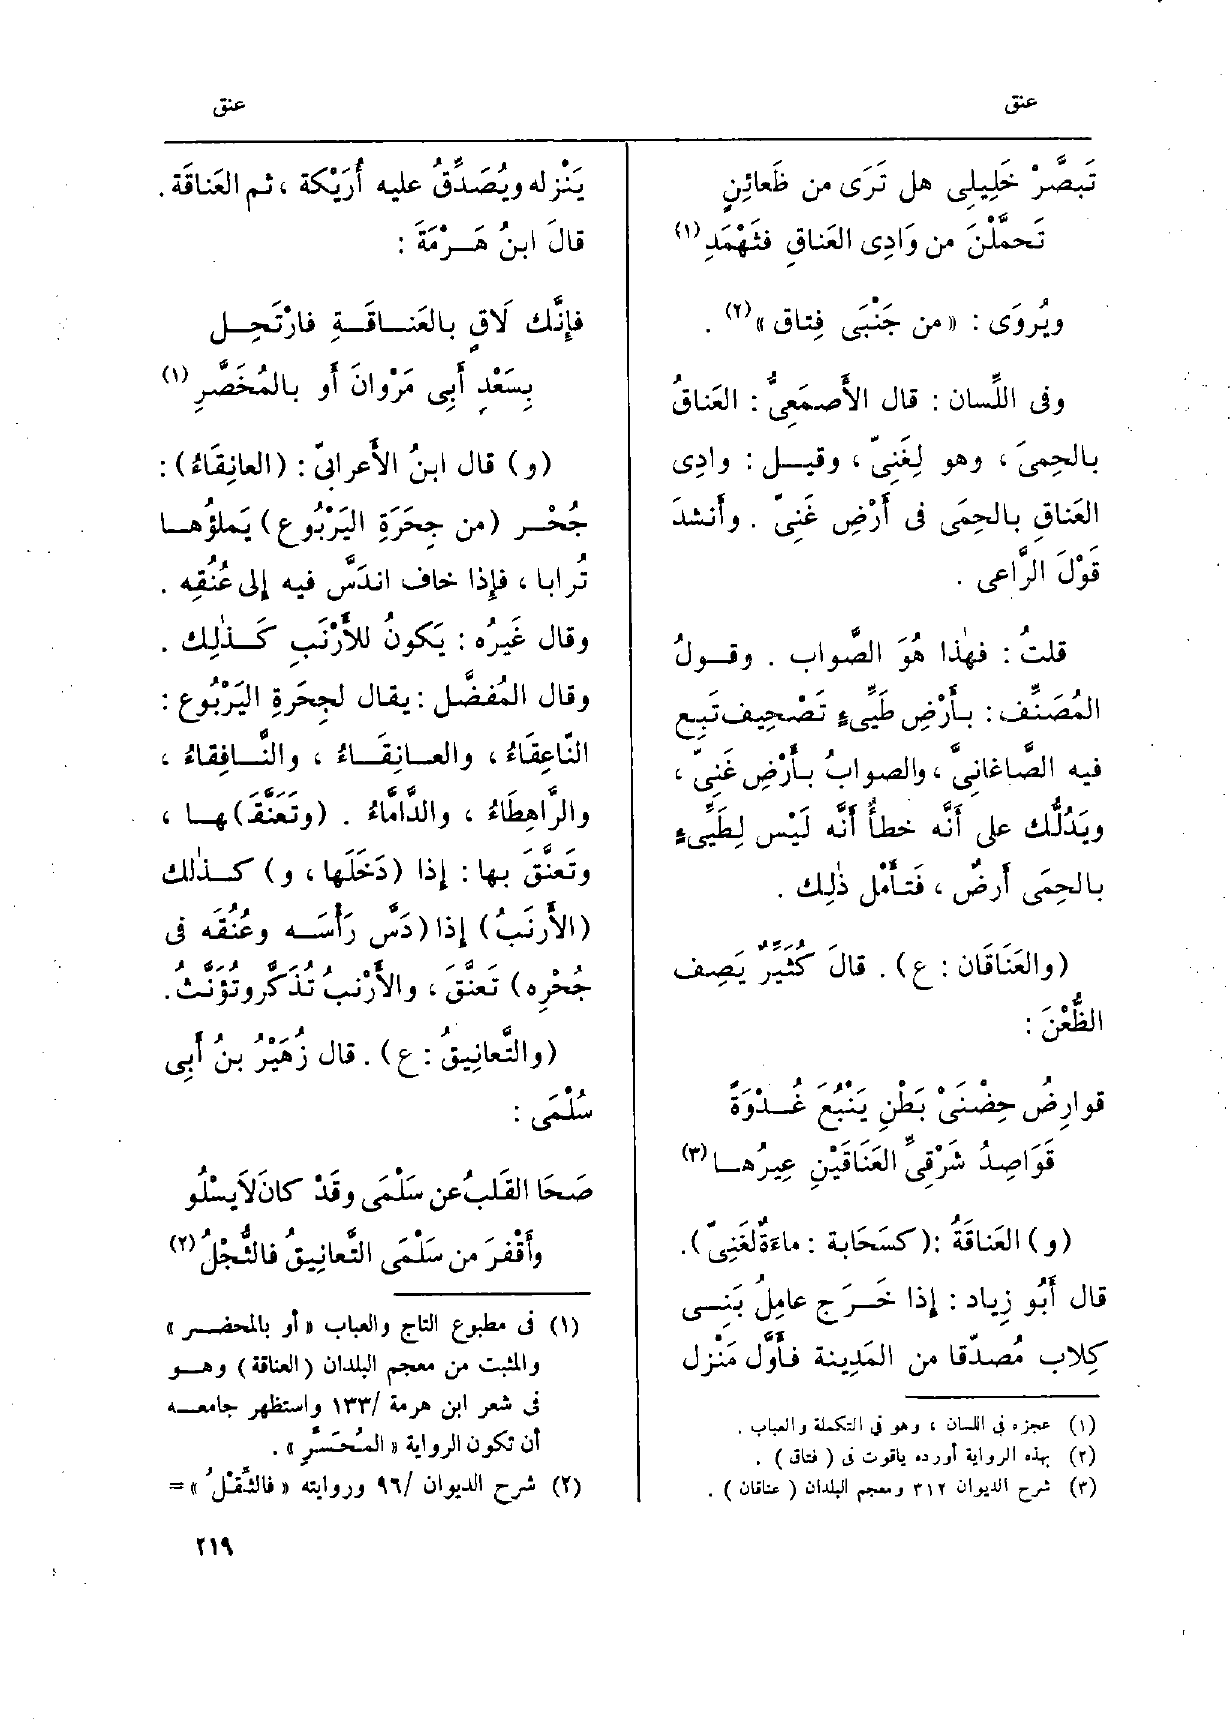 عنق
عنق
تَبصَّرْ خَلِيلِى هل تَرَى من ظَعائِنٍ
تَحمَّلْنَ من وَادِى العَناقِ فثَهْمَدِ (١)
ويُروَى : « من جَنْبَى فِتاق » (٢) .
وفى اللِّسان : قال الأَصمَعِىُّ : العَناقُ
بالحِمىَ ، وهو لِغَنِىّ ، وقيل : وادِى
العَناقِ بالحِمَى فى أَرْضِ غَنِىّ . وأَنشدَ
قَوْلَ الرَّاعى .
قلتُ : فهٰذا هُوَ الصَّواب . وقولُ
المُصَنِّف : بأَرْضِ طَيِّىءٍ تَصْحِيف تَبِع
فيه الصَّاغانىَّ ، والصوابُ بأَرْضِ غَنِىّ ،
ويَدُلُّك على أَنَّه خطأٌ أَنَّه لَيْس لِطَيِّىءٍ
بالحِمَى أَرضٌ ، فَتأَمْل ذٰلِك .
(والعَنَاقَان : ع) . قالَ كُثَيِّرٌ يَصِف
الظُّعْنَ :
قوارِضُ حِضْنَىْ بَطْنِ يَنْبُعَ غُدْوَةً
قَوَاصِدُ شَرْقِىِّ العَنَاقَيْنِ عِيرُها (٣)
(و) العَناقَةُ : (كسَحَابة : ماءَةٌ لغَنِىّ) .
قال أَبُو زِياد : إِذا خَرَج عامِلُ بَنِى
كِلاب مُصدِّقا من المَدِينة فأَوَّل مَنْزل
(١) عجزه فى اللسان ، وهو فى التكملة والعباب .
(٢) بهذه الرواية أورده ياقوت فى ( فتاق ) .
(٣) شرح الديوان ٣١٢ ومعجم البلدان ( عناقان ) .
يَنْزله ويُصَدِّقُ عليه أُرَيْكة ، ثم العَناقَة .
قالَ ابنُ هَرْمَةَ :
فإِنَّك لَاقٍ بالعَناقَةِ فارْتَحِل
بِسَعْدِ أَبِى مَرْوانَ أَو بالمُخَصَّرِ (١)
(و) قال ابنُ الأَعرابىّ : (العانِقَاءُ) :
جُحْر (من جِحَرَةِ اليَرْبُوع) يَملؤُها
تُرابا ، فإِذا خاف اندَسَّ فيه إِلى عُنُقِه .
وقال غَيرُه : يَكونُ للأَرْنَبِ كَذٰلِك .
وقال المُفضَّل : يقال لجِحَرةِ اليَرْبُوع :
النَّاعِقَاءُ ، والعانِقَاءُ ، والنَّافِقاءُ ،
والرَّاهِطَاءُ ، والدَّامَّاءُ . (وتَعَنَّقَ)ها ،
وتَعنَّقَ بها : إِذا (دَخَلَها ، و) كذٰلك
(الأَرنَبُ) إِذا (دَسَّ رَأْسَه وعُنُقَه فى
جُحْرِه) تَعنَّقَ ، والأَرْنبُ تُذَكَّرُ وتُؤَنَّثُ .
(والتَّعانِيقُ : ع) . قال زُهَيْرُ بنُ أَبِى
سُلْمَى :
صَحَا القَلبُ عن سَلْمَى وقَدْ كانَ لاَ يَسْلُو
وأَقْفرَ من سَلْمَى التَّعانِيقُ فالثُّجْلُ (٢)
(١) فى مطبوع التاج والعباب « أو بالمحضر »
والمثبت من معجم البلدان (العناقة) وهو
فى شعر ابن هرمة /١٣٣ واستظهر جامعه
أن تكون الرواية « المُحَسَّرِ » .
(٢) شرح الديوان /٩٦ وروايته « فالثِّقْلُ » =
٢١٩